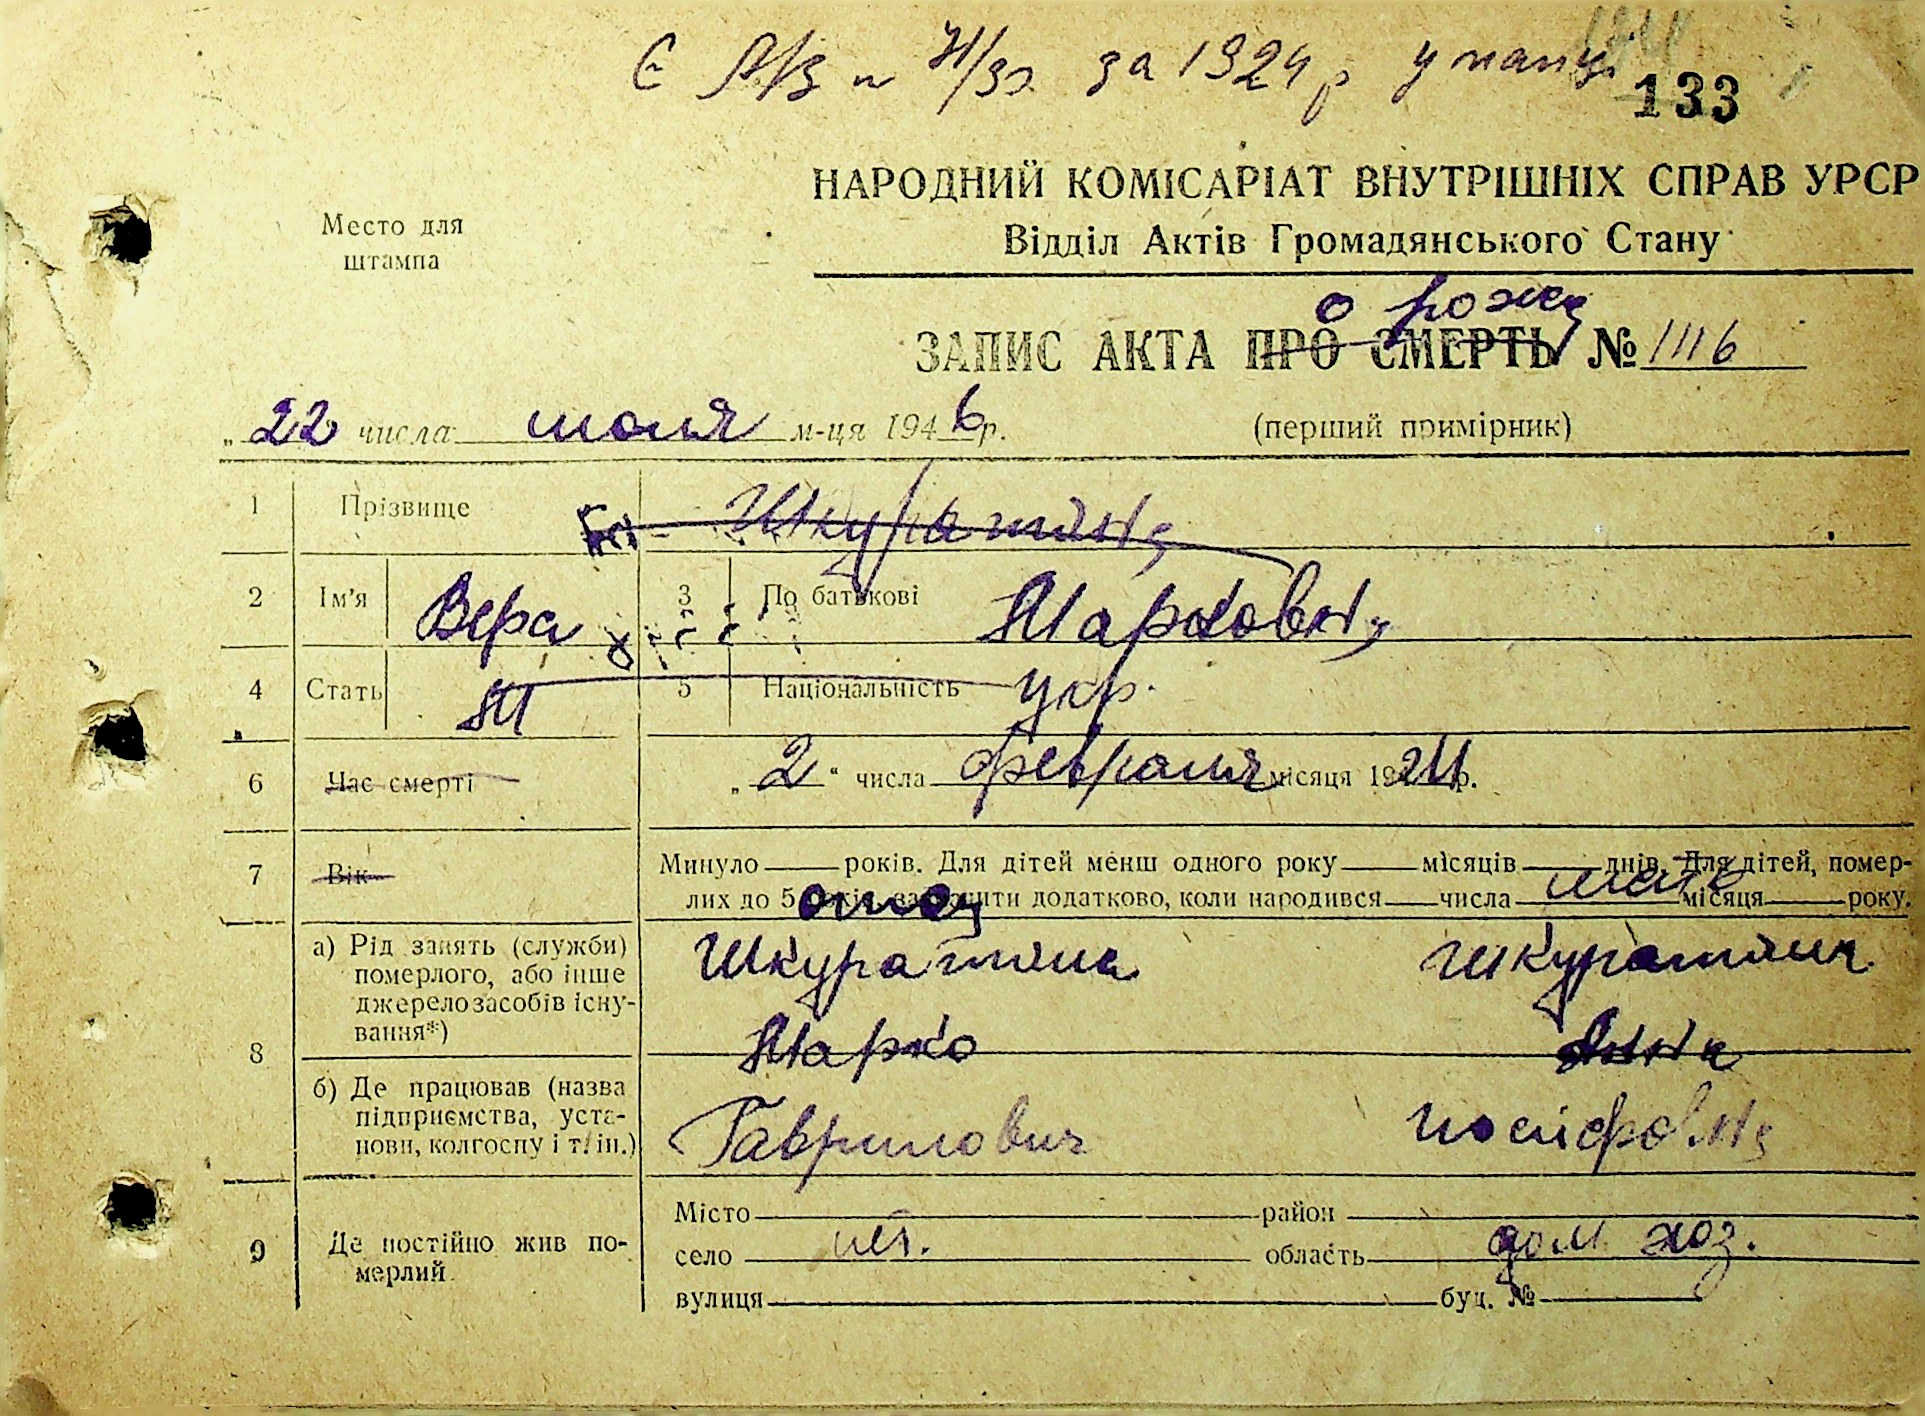 Є А/З за 1924 р у папці
133
НАРОДНИЙ КОМІСАРІАТ ВНУТРІШНІХ СПРАВ УРСР
Відділ Актів Громадянського Стану
Место для
штампа
о рожд
ЗАПИС АКТА ПРО СМЕРТЬ № 1116
„ 22 числа июля м-ця 1946 р.
(перший примірник)
1 Прізвище Шкуратяна
2 Ім'я Вера 3 По батькові Марковна
4 Стать 5 Національність укр.
6 Час смерті „ 2 “ числа февраля місяця 1924 р.
7 Вік Минуло років. Для дітей менш одного року місяців днів. Для дітей, помер-
лих до 5 років зазначити додатково, коли народився числа місяця року.
отец мать
8 а) Рід занять (служби)
померлого, або інше
джерело засобів існу-
вання*)
Шкуратяна Шкуратяна
Марко Анна
б) Де працював (назва
підприємства, уста-
нови, колгоспу і т. ін.)
Гаврилович Иосифовна
9 Де постійно жив по-
мерлий
Місто район
село область дом хоз.
вулиця буд. №